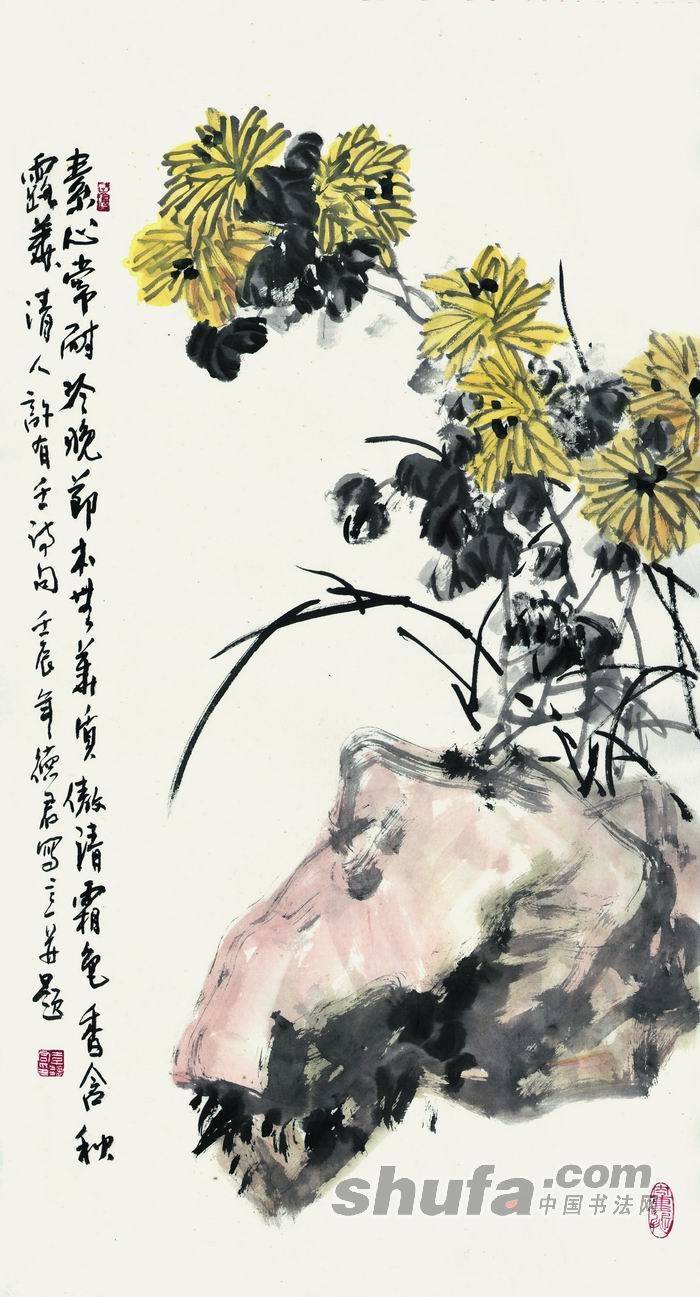 素心常耐冷晚節本無華質傲清霜色香含秋
露華清人許有壬詩句壬辰年德君寫意并題
shufa.com
中国书法网